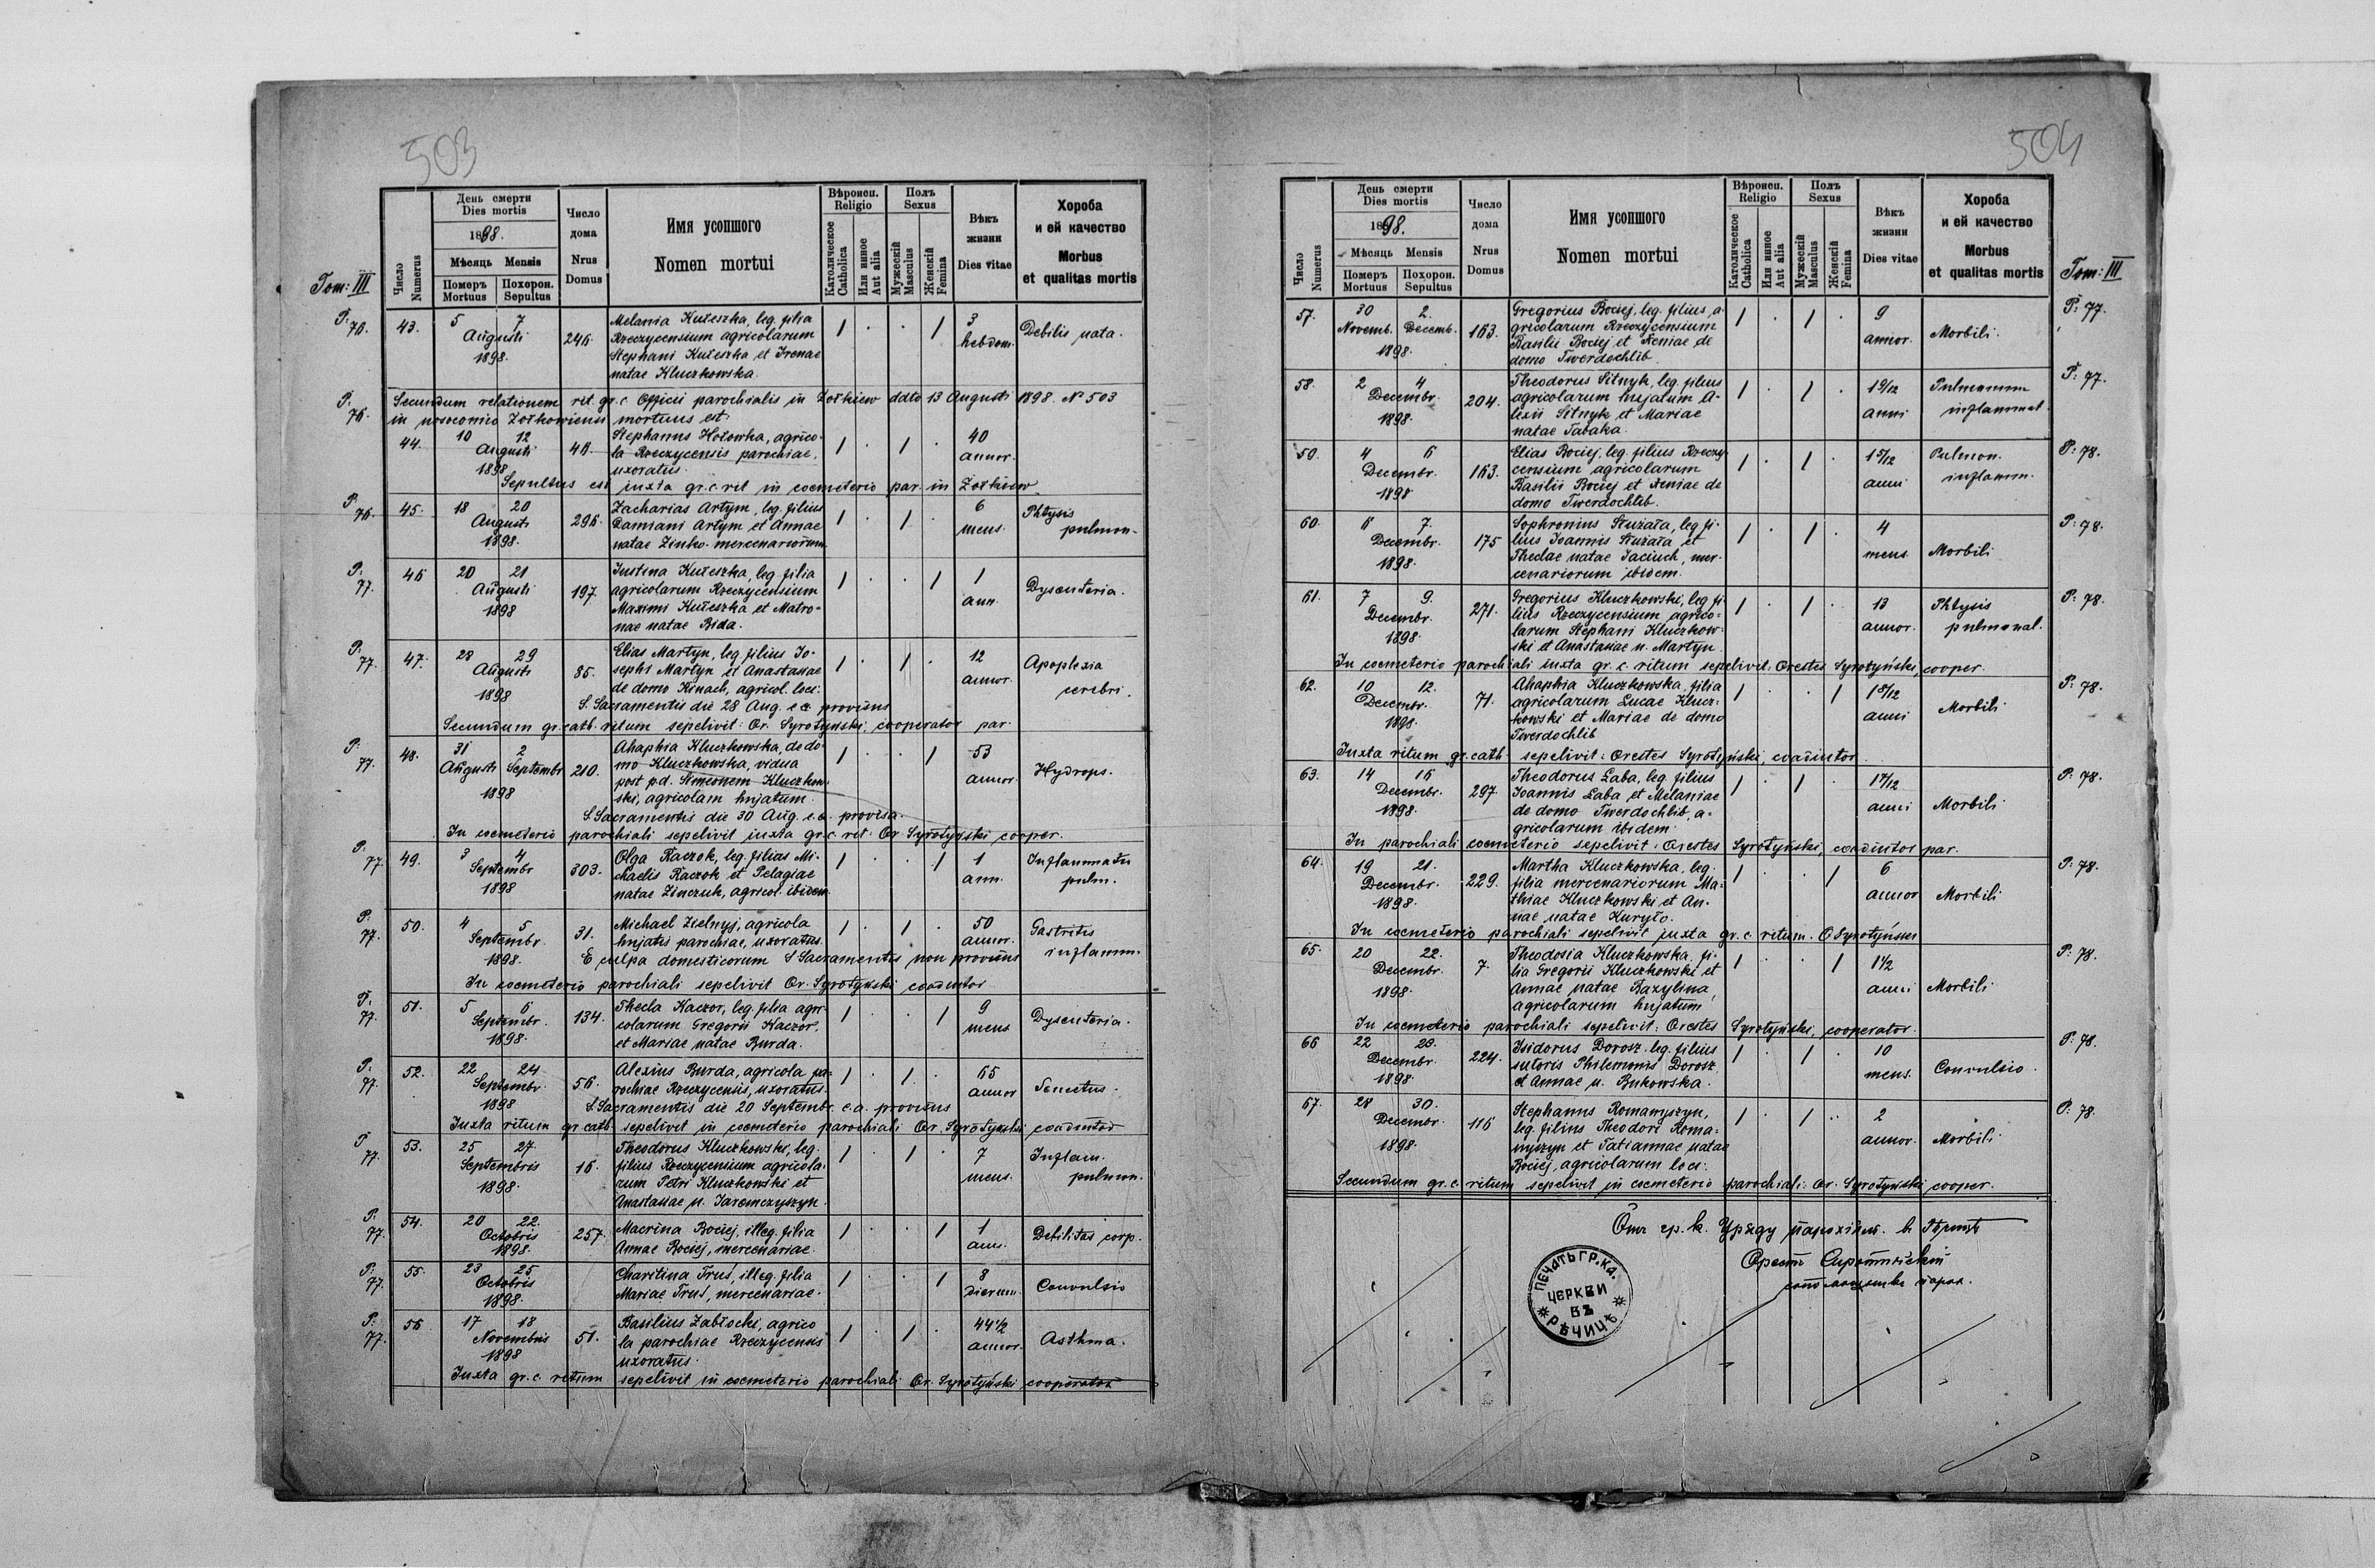 503
Tom: III
Число Numerus
День смерти
Dies mortis
1898.
Мѣсяць Mensis
Померъ Mortuus
Похорон. Sepultus
Число дома
Nrus Domus
Имя усопшого
Nomen mortui
Вѣроисп. Religio
Католическое Catholica
Или инное Aut alia
Полъ Sexus
Мужескій Masculus
Женскій Femina
Вѣкъ жизни
Dies vitae
Хороба и ей качество
Morbus et qualitas mortis
P. 76. 43. 5 7 246. Melania Kułeszka, leg. filia 1 . . 1 3 Debilis nata.
Augusti Rzeczycensium agricolarum hebdom.
1898. Stephani Kułeszka et Irenae
natae Kluczkowska.
P. 76. Secundum relationem rit. gr. c. Officii parochialis in Żołkiew ddto 13 Augusti 1898. N 503
in nosocomio Żołkowiensi mortuus est:
44. 10 12 Stephanus Hołowka, agrico- 1 . 1 . 40
Augusti la Rzeczycensis parochiae, annor.
1898 uxoratus.
Sepultus est juxta gr. c. rit in coemeterio par. in Żołkiew.
P. 76. 45. 18 20 296. Zacharias Artym, leg. filius 1 . 1 . 6 Phtysis
Augusti Damiani Artym et Annae mens. pulmon.
1898. natae Zinko. mercenariorum
P. 77. 46 20 21 197. Justina Kułeszka, leg. filia 1 . . 1 1 Dysenteria.
Augusti agricolarum Rzeczycensium ann.
1898 Maximi Kułeszka et Matro-
nae natae Bida.
P. 77. 47. 28 29 85. Elias Martyn, leg. filius Jo- 1 . 1 . 12 Apoplexia
Augusti sephi Martyn et Anastasiae annor. cerebri.
1898 de domo Kinach, agricol. loci:
S. Sacramentis die 28 Aug. e. a. provisus
Secundum gr. cath. ritum sepelivit: Or. Syrotyński, cooperator par.
P. 77. 48. 31 2 210. Ahaphia Kluczkowska, de do- 1 . . 1 53 Hydrops.
Augusti Septembr mo Kluczkowska, vidua annor.
1898 post p.d. Simeonem Kluczkow-
ski, agricolam hujatum.
S. Sacramentis die 30 Aug. e.a. provisa.
In coemeterio parochiali sepelivit juxta gr. c. rit. Or. Syrotyński cooper.
P. 77. 49. 3 4 303. Olga Kaczok, leg. filias Mi- 1 . . 1 1 Inflammatu
Septembr chaelis Kaczok et Pelagiae ann. pulm.
1898 natae Zinczuk, agricol. ibidem
P. 77. 50. 4 5 31. Michael Zielnyj, agricola 1 . 1 . 50 Gastritis
Septembr. hujatis parochiae, uxoratus. annor. inflamm.
1898. E culpa domesticorum S Sacramentis non provisus
In coemeterio parochiali sepelivit Or. Syrotyński coadiutor
P. 77. 51. 5 6 134. Thecla Kaczor, leg. filia agri- 1 . . 1 9 Dysenteria.
Septembr. colarum Gregorii Kaczor, mens
1898. et Mariae natae Burda.
P. 77. 52. 22 24 56. Alexius Burda, agricola pa- 1 . 1 . 65 Senectus.
Septembr rochiae Rzeczycensis, uxoratus. annor
1898 S. Sacramentis die 20 Septembr. e.a. provisus
Juxta ritum gr. cath. sepelivit in coemeterio parochiali Or. Syrotyński coadiutor
P 77. 53. 25 27. 16. Theodorus Kluczkowski, leg. 1 . 1 . 7 Inflam.
Septembris filius Rzeczycensium agricola- mens. pulmon.
1898. rum Petri Kluczkowski et
Anastasiae n. Jaremczyszyn.
P. 77. 54. 20 22. 257. Macrina Bociej, illeg. filia 1 . . 1 1 Debilitas corp.
Octobris Annae Bociej, mercenariae. ann.
1898.
P. 77. 55. 23 25 Charitina Truś, illeg. filia 1 . . 1 8 Convulsio
Octobris Mariae Truś, mercenariae. dierum.
1898.
P. 77. 56 17 18 51. Basilius Zabłocki, agrico 1 . 1 . 44 1/2 Asthma.
Novembris la parochiae Rzeczycensis annor.
1898 uxoratus.
Juxta gr. c. ritum sepelivit in coemeterio parochiali Or. Syrotyński cooperator
504
Tom: III
Число Numerus
День смерти
Dies mortis
1898.
Мѣсяць Mensis
Померъ Mortuus
Похорон. Sepultus
Число дома
Nrus Domus
Имя усопшого
Nomen mortui
Вѣроисп. Religio
Католическое Catholica
Или инное Aut alia
Полъ Sexus
Мужескій Masculus
Женскій Femina
Вѣкъ жизни
Dies vitae
Хороба и ей качество
Morbus et qualitas mortis
57. 30 2. 163. Gregorius Bociej, leg. filius, a- 1 . 1 . 9 Morbili. P: 77.
Novemb. Decemb. gricolarum Rzeczycensium annor.
1898. Basilii Bociej et Xeniae de
domo Twerdochlib.
58. 2 4 204. Theodorus Sitnyk, leg. filius 1 . 1 . 1 9/12 Pulmonum P: 77.
Decembr. agricolarum hujatum A- anni inflammat.
1898. lexii Sitnyk et Mariae
natae Tabaka.
59. 4 6 163. Elias Bociej, leg. filius Rzeczy- 1 . 1 . 1 5/12 Pulmon. P: 78.
Decembr. censium agricolarum anni inflamm.
1898 Basilii Bociej et Xeniae de
domo Twerdochlib.
60. 6 7. 175 Sophronius Stużała, leg. fi- 1 . 1 . 4 Morbili P: 78.
Decembr. lius Joannis Stużała et mens.
1898. Theclae natae Jaciuch, mer-
cenariorum ibidem.
61. 7 9. 271. Gregorius Kluczkowski, leg. fi- 1 . 1 . 13 Phtysis P: 78.
Decembr. lius Rzeczycensium agrico- annor. pulmonal.
1898. larum Stephani Kluczkow-
ski et Anastasiae n. Martyn.
In coemeterio parochiali juxta gr. c. ritum sepelivit. Orestes Syrotyński, cooper.
62. 10 12. 71. Ahaphia Kluczkowska, filia 1 . . 1 1 8/12 Morbili P: 78.
Decembr. agricolarum Lucae Klucz- anni
1898. kowski et Mariae de domo
Twerdochlib
Juxta ritum gr. cath. sepelivit: Orestes Syrotyński, coadiutor.
63. 14 16 297. Theodorus Laba, leg. filius 1 . 1 1 7/12 Morbili P: 78.
Decembr. Joannis Laba et Melaniae anni
1898. de domo Twerdochlib, a-
gricolarum ibidem.
In parochiali coemeterio sepelivit. Orestes Syrotyński, coadiutor par.
64. 19 21. 229. Martha Kluczkowska, leg. 1 . . 1 6 Morbili P: 78.
Decembr. filia mercenariorum Ma- annor
1898. thiae Kluczkowski et An-
nae natae Kuryło.
In coemeterio parochiali sepelivit juxta gr. c. ritum. O Syrotyński
65. 20 22. 7. Theodosia Kluczkowska, fi- 1 . . 1 1 1/2 Morbili P: 78.
Decembr. lia Gregorii Kluczkowski et anni
1898. Annae natae Bazylina,
agricolarum hujatum
In coemeterio parochiali sepelivit: Orestes Syrotyński, cooperator.
66 22 23. 224. Isidorus Dorosz. leg. filius 1 . 1 . 10 Convulsio. P: 78.
Decembr. sutoris Philemonis Dorosz mens.
1898. et Annae n. Bukowska.
67. 28 30. 116 Stephanus Romanyszyn, 1 . 1 . 2 Morbili. P: 78.
Decembr. leg. filius Theodori Roma- annor.
1898. nyszyn et Tatiannae natae
Bociej, agricolarum loci.
Secundum gr. c. ritum sepelivit in coemeterio parochiali: Or. Syrotyński cooper.
Отъ гр. к. Уряду парохіял. в Рѣчицѣ
Орест Сиротинскій
сотрудникъ парох.
ПЕЧАТЬ ГР. КА. ЦЕРКВИ ВЪ РѢЧИЦѢ